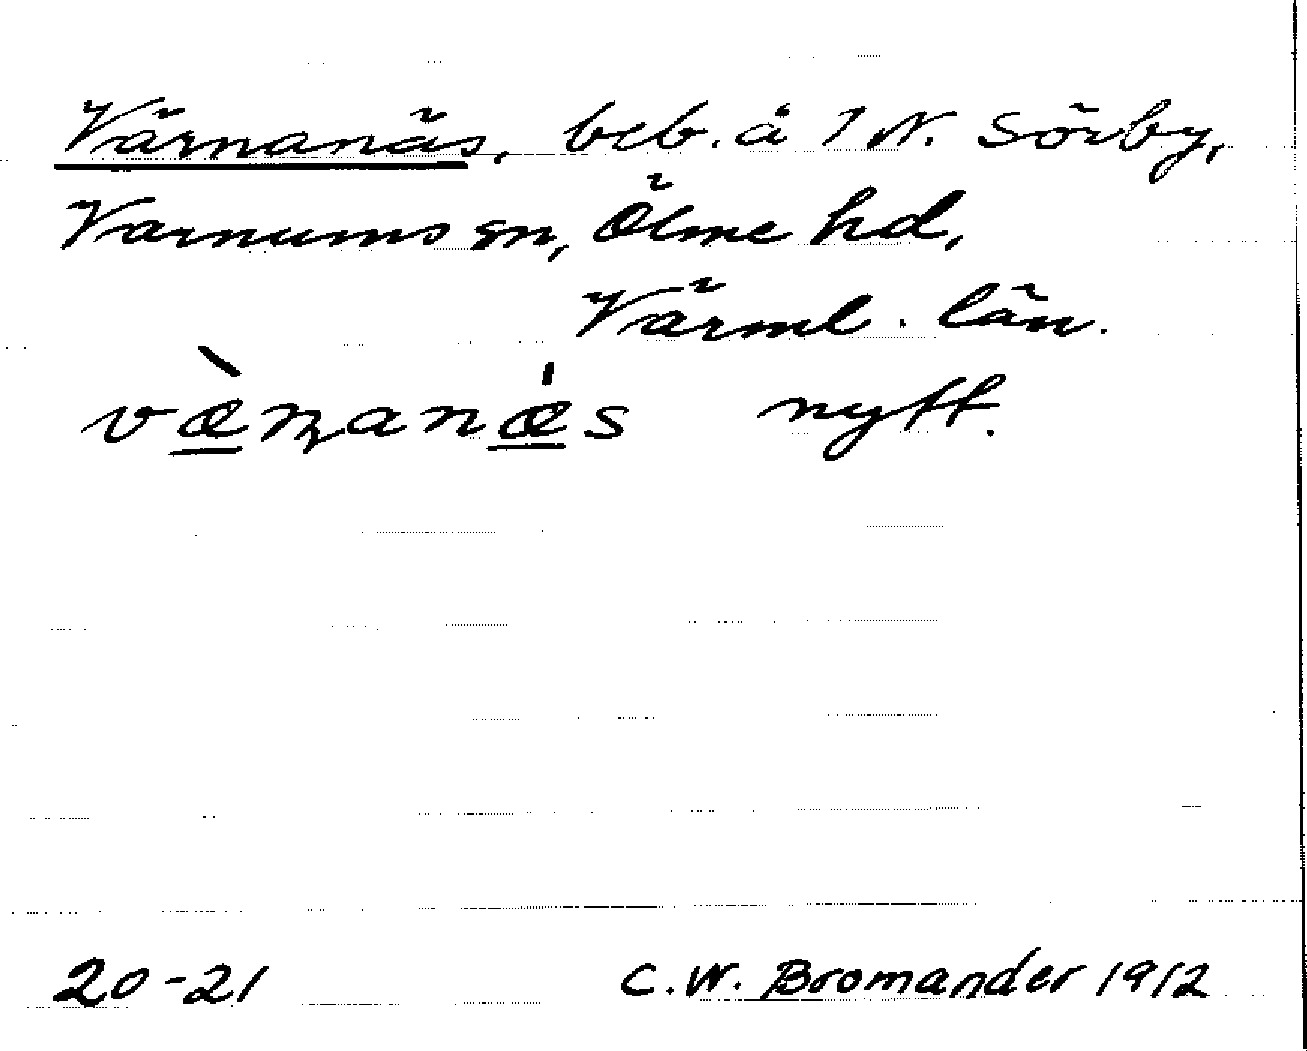 Värnanäs, beb. å 1 N. Sörby,
Varnums sn, Ölme hd,
Värml. län.
væ̀ɳanǽs nytt.
20-21 C.W. Bromander 1912